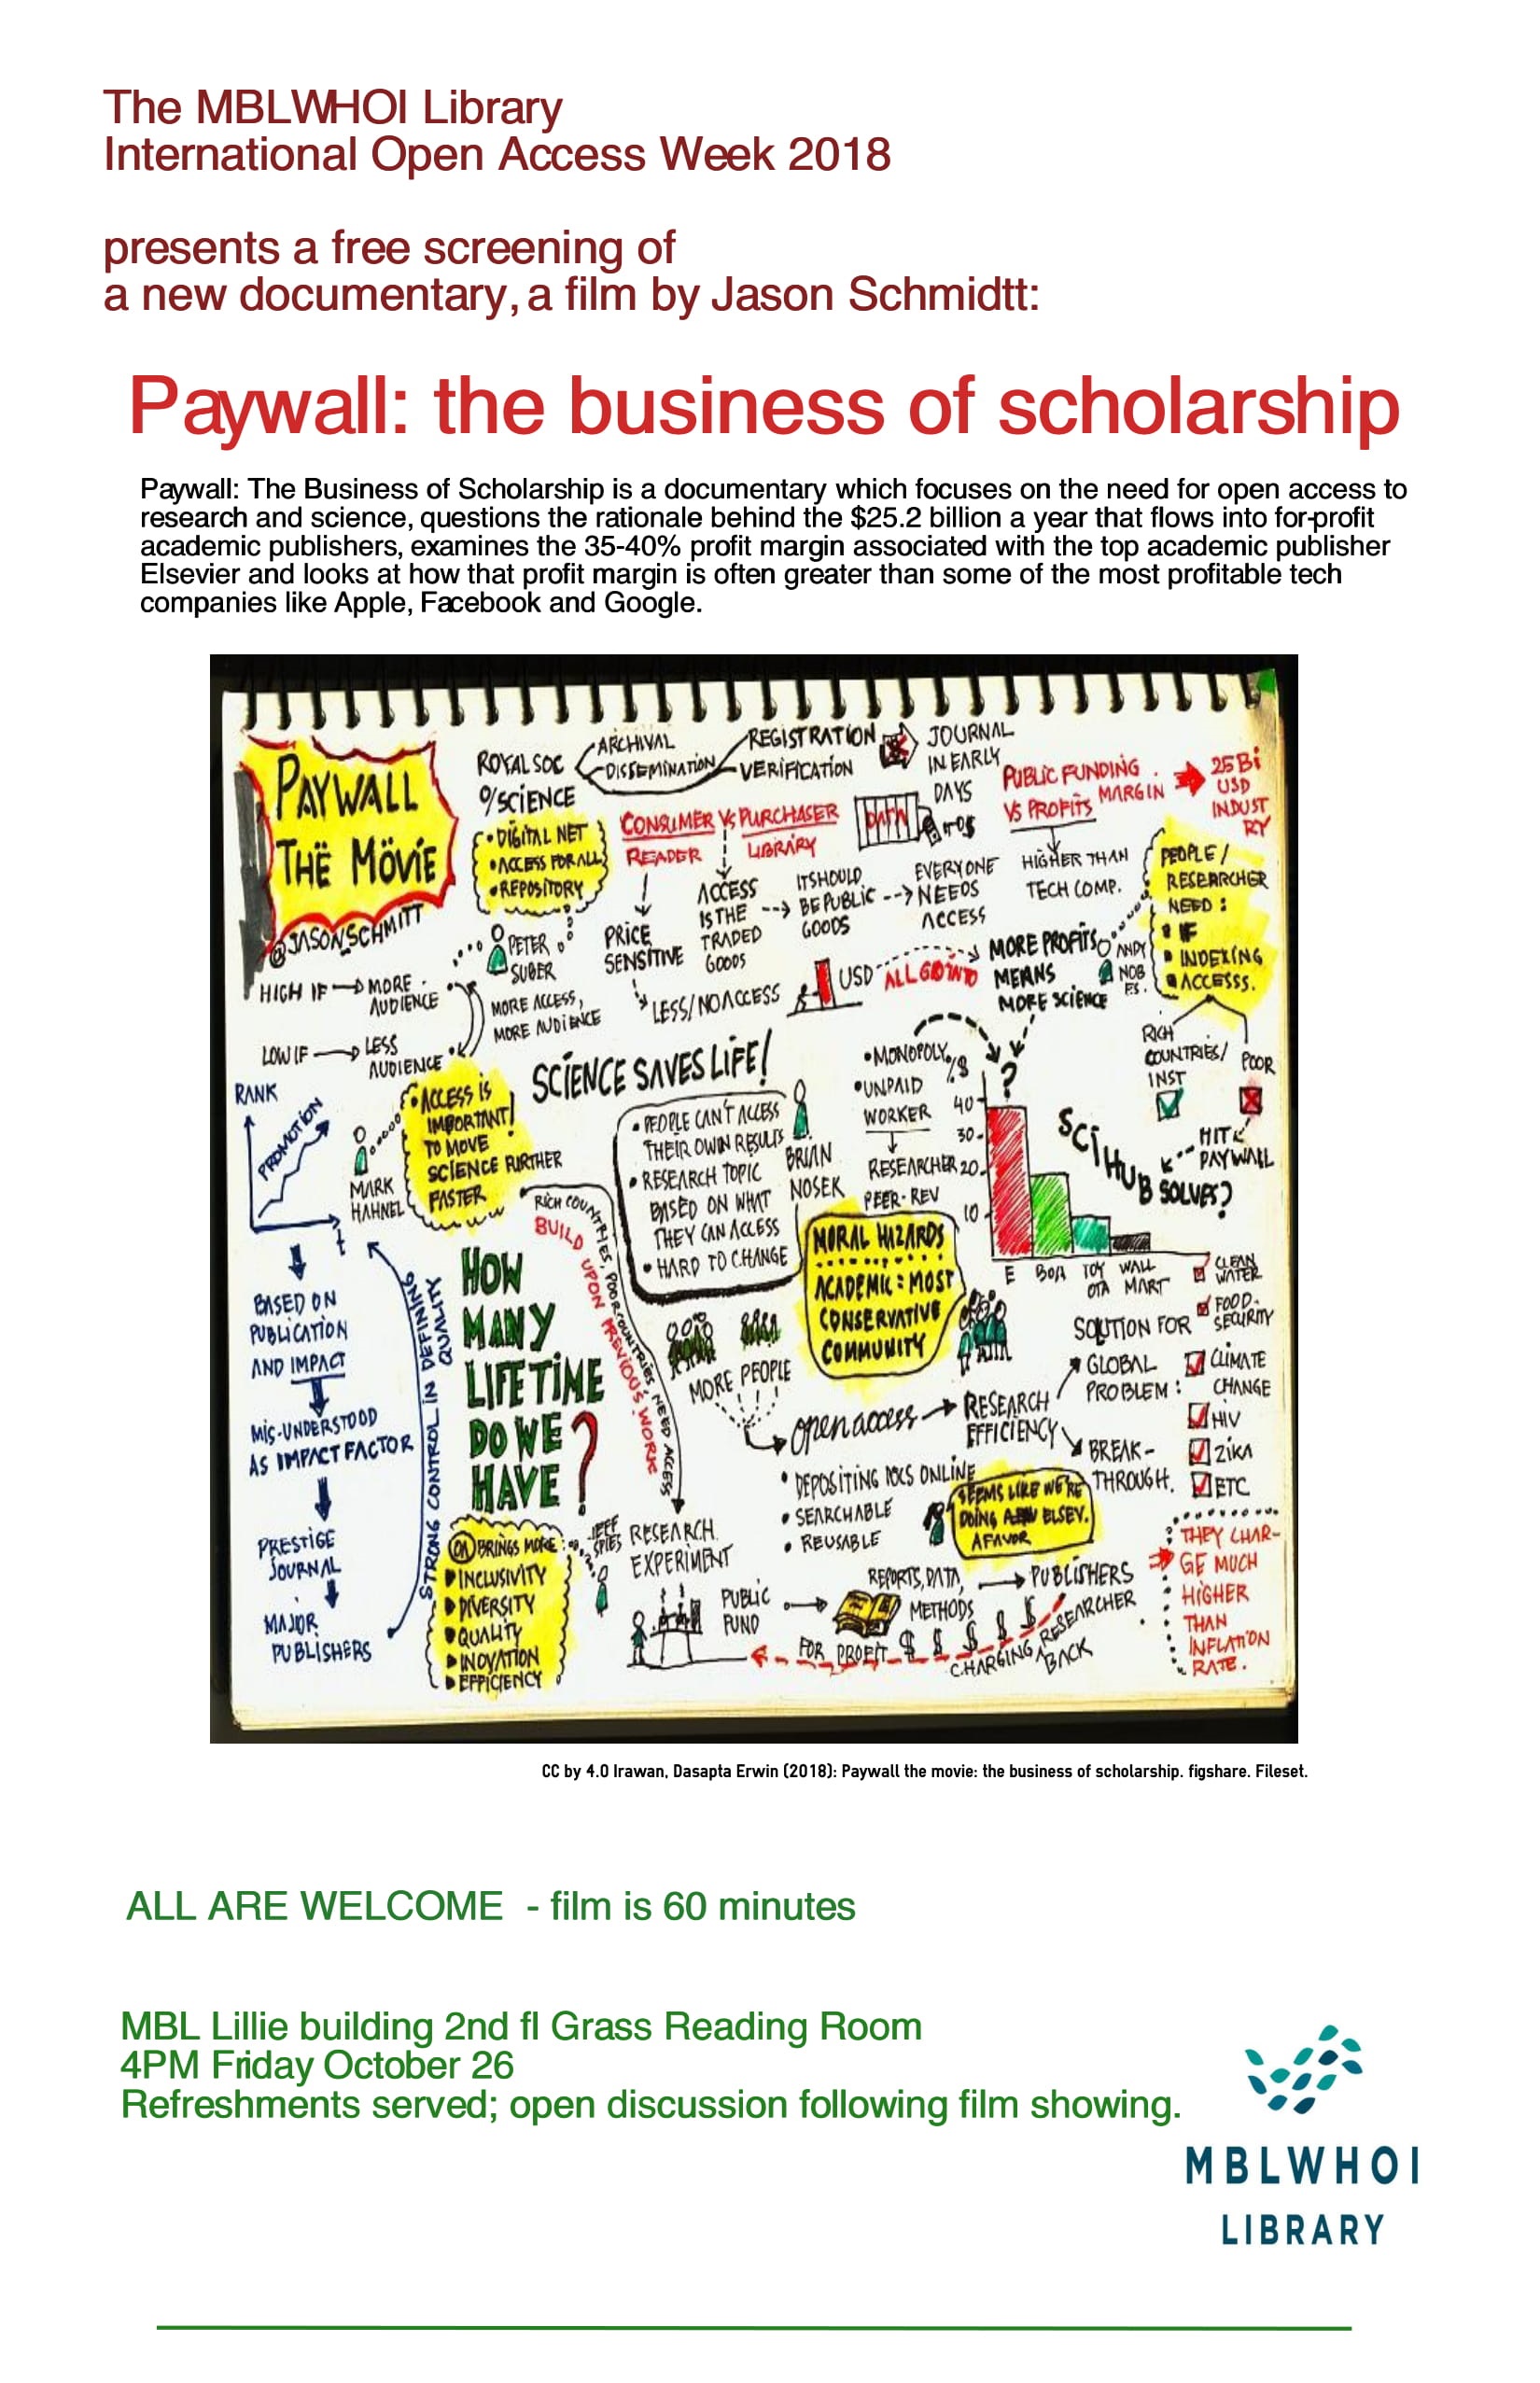 The MBLWHOI Library
International Open Access Week 2018
presents a free screening of
a new documentary, a film by Jason Schmidtt:
Paywall: the business of scholarship
Paywall: The Business of Scholarship is a documentary which focuses on the need for open access to
research and science, questions the rationale behind the $25.2 billion a year that flows into for-profit
academic publishers, examines the 35-40% profit margin associated with the top academic publisher
Elsevier and looks at how that profit margin is often greater than some of the most profitable tech
companies like Apple, Facebook and Google.
PAYWALL
THË MÖVİE
@JASONSCHMITT
ROYAL SOC
O/SCIENCE
ARCHIVAL
DISSEMINATION
REGISTRATION
VERIFICATION
JOURNAL
IN EARLY
DAYS
PUBLIC FUNDING
VS PROFITS MARGIN
25Bi
USD
INDUST
RY
• DIGITAL NET
• ACCESS FOR ALL
• REPOSITORY
CONSUMER VS PURCHASER
READER
LIBRARY
DATA
HIGHER THAN
TECH COMP.
PEOPLE/
RESEARCHER
NEED:
IF
INDEXING
ACCESSS.
PRICE
SENSITIVE
ACCESS
IS THE
TRADED
GOODS
IT SHOULD
BE PUBLIC
GOODS
EVERYONE
NEEDS
ACCESS
PETER
SUBER
HIGH IF
MORE
AUDIENCE
LOW IF
LESS
AUDIENCE
MORE ACCESS,
MORE AUDIENCE
LESS/NO ACCESS
USD
ALL GO INTO
MORE PROFITS
MEANS
MORE SCIENCE
ANDY
NOB
ES.
RICH
COUNTRIES/
INST
POOR
HIT
PAYWALL
SCIHUB SOLVES?
RANK
PROMOTION
t
MARK
HAHNEL
• ACCESS IS
IMPORTANT!
TO MOVE
SCIENCE FURTHER
FASTER
SCIENCE SAVES LIFE!
• PEOPLE CAN'T ACCESS
THEIR OWN RESULTS
• RESEARCH TOPIC
BASED ON WHAT
THEY CAN ACCESS
• HARD TO CHANGE
BRIAN
NOSEK
• MONOPOLY
• UNPAID
WORKER
RESEARCHER
PEER-REV
?
40
30
20
10
E
BOA
TOY
OTA
WALL
MART
MORAL HAZARDS
ACADEMIC: MOST
CONSERVATIVE
COMMUNITY
BASED ON
PUBLICATION
AND IMPACT
MIS-UNDERSTOOD
AS IMPACT FACTOR
PRESTIGE
JOURNAL
MAJOR
PUBLISHERS
STRONG CONTROL IN DEFINING
QUALITY
HOW
MANY
LIFETIME
DO WE
HAVE?
RICH COUNTRIES, POOR COUNTRIES, NEED ACCESS
BUILD UPON PREVIOUS WORK
MORE PEOPLE
open access
RESEARCH
EFFICIENCY
SOLUTION FOR
GLOBAL
PROBLEM:
CLEAN
WATER
FOOD-
SECURITY
CLIMATE
CHANGE
HIV
ZIKA
ETC
BREAK-
THROUGH.
• DEPOSITING DOCS ONLINE
• SEARCHABLE
• REUSABLE
SEEMS LIKE WE'RE
DOING ELSEV.
A FAVOR
OA BRINGS MORE:
INCLUSIVITY
DIVERSITY
QUALITY
INOVATION
EFFICIENCY
JEFF
SPIES
RESEARCH
EXPERIMENT
PUBLIC
FUND
REPORTS, DATA,
METHODS
PUBLISHERS
FOR PROFIT $ $ $ $ $
CHARGING RESEARCHER
BACK
THEY CHAR-
GE MUCH
HIGHER
THAN
INFLATION
RATE.
CC by 4.0 Irawan, Dasapta Erwin (2018): Paywall the movie: the business of scholarship. figshare. Fileset.
ALL ARE WELCOME - film is 60 minutes
MBL Lillie building 2nd fl Grass Reading Room
4PM Friday October 26
Refreshments served; open discussion following film showing.
MBLWHOI
LIBRARY